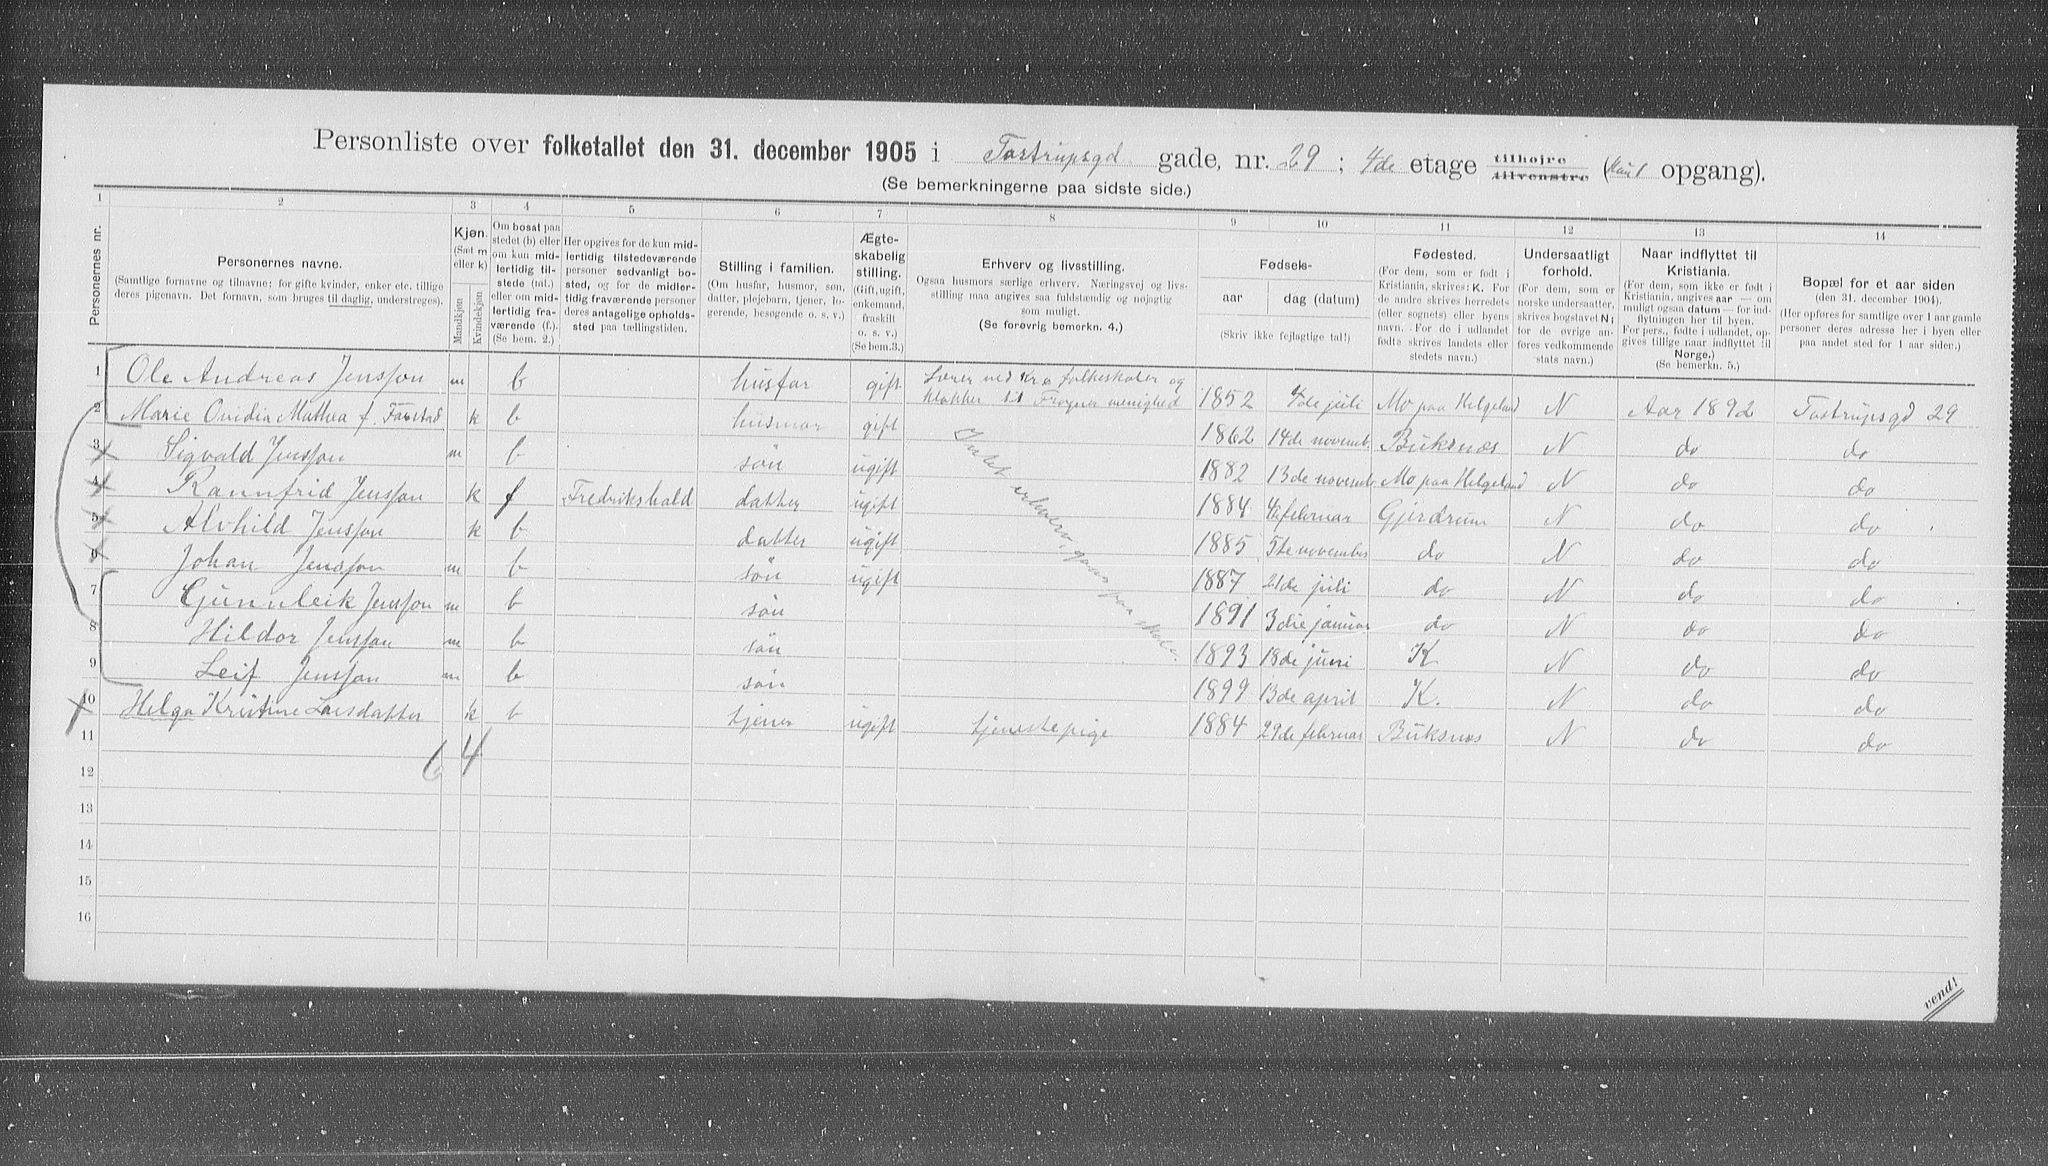 Personliste over folketallet den 31. december 1905 i Tostrupsgd gade, nr. 29 ; 4de etage tilhøjre tilvenstre ( opgang).
(Se bemerkningerne paa sidste side.)
1 2 3 4 5 6 7 8 9 10 11 12 13 14
Personernes nr.
Personernes navne.
(Samtlige fornavne og tilnavne; for gifte kvinder, enker etc. tillige deres pigenavn. Det fornavn, som bruges til daglig, understreges).
Kjøn.
(Sæt m eller k)
Mandkjøn
Kvindekjøn
Om bosat paa stedet (b) eller om kun midlertidig tilstede (mt.) eller om midlertidig fraværende (f.). (Se bem. 2.)
Her opgives for de kun midlertidig tilstedeværende personer sedvanligt bosted, og for de midlertidig fraværende personer deres antagelige opholdssted paa tællingstiden.
Stilling i familien.
(Om husfar, husmor, søn, datter, plejebarn, tjener, logerende, besøgende o. s. v.)
Ægteskabelig stilling.
(Gift, ugift, enkemand, fraskilt o. s. v.)
(Se bem.3.)
Erhverv og livsstilling.
Ogsaa husmors særlige erhverv. Næringsvej og livsstilling maa angives saa fuldstændig og nøjagtig som muligt.
(Se forøvrig bemerkn. 4.)
Fødsels-
aar
dag (datum)
(Skriv ikke fejlagtige tal!)
Fødested.
(For dem, som er født i Kristiania, skrives: K. For de andre skrives herredets (eller sognets) eller byens navn. For de i udlandet fødte skrives landets eller stedets navn.)
Undersaatligt forhold.
(For dem, som er norske undersaatter, skrives bogstavet N; for de øvrige anføres vedkommende stats navn.)
Naar indflyttet til Kristiania.
(For dem, som ikke er født i Kristiania, angives aar — om muligt ogsaa datum — for indflytningen her til byen. For pers., fødte i udlandet, opgives tillige naar indflyttet til Norge.)
(Se bemerkn. 5.)
Bopæl for et aar siden
(den 31. december 1904).
(Her opføres for samtlige over 1 aar gamle personer deres adresse her i byen eller paa andet sted for 1 aar siden.)
1 Ole Andreas Jensson m b husfar gift Lærer ved Kra folkeskoler og klokker til Frogner menighed 1852 4de juli Mo paa Helgeland N Aar 1892 Tostrupsgd 29
2 Marie Ovidia Mathea f. Farstad k b husmor gift 1862 14de novemb. Buksnæs N do do
3 Sigvald Jensson m b søn ugift 1882 13de novemb. Mo paa Helgeland N do do
4 Rannfrid Jensson k f Fredrikshald datter ugift 1884 4de februar Gjerdrum N do do
5 Alvhild Jensson k b datter ugift 1885 5te november do N do do
6 Johan Jensson m b søn ugift 1887 21de juli do N do do
7 Gunnleik Jensson m b søn 1891 3die januar do N do do
8 Hildor Jensson m b søn 1893 18de juni K N do do
9 Leif Jensson m b søn 1899 13de april K. N do do
Intet erhverv, gaar paa skole.
10 Helga Kristine Larsdatter k b tjener ugift tjenestepige 1884 29de februar Buksnæs N do do
11
6 4
12
13
14
15
16
vend!